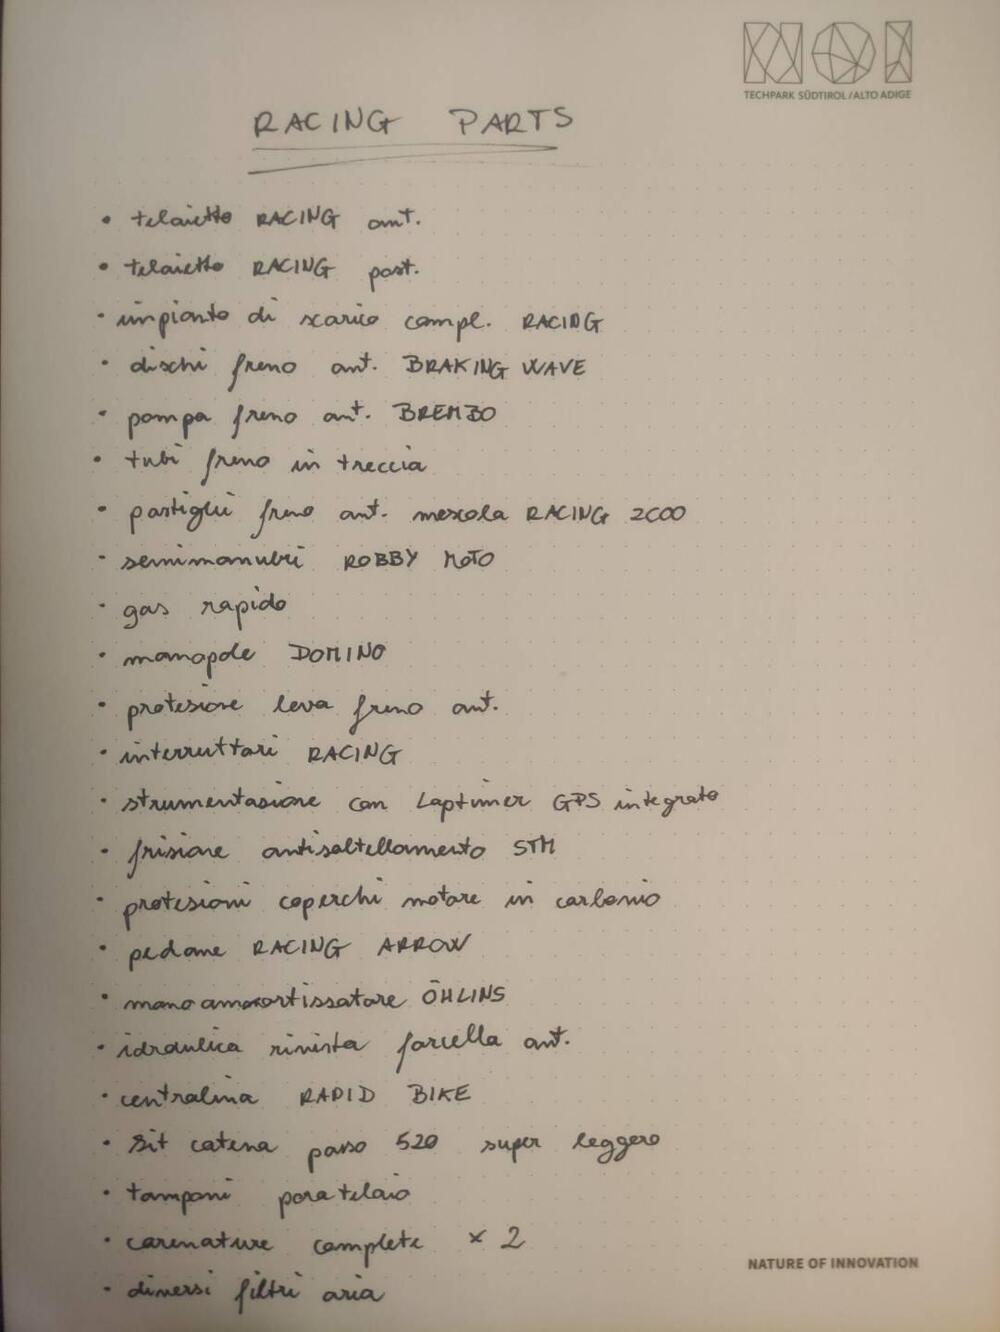 NOI
TECHPARK SÜDTIROL / ALTO ADIGE
RACING PARTS
• telaietto RACING ant.
• telaietto RACING post.
• impianto di scarico compl. RACING
• dischi freno ant. BRAKING WAVE
• pompa freno ant. BREMBO
• tubi freno in treccia
• pastiglie freno ant. mescola RACING 2000
• semimanubri ROBBY MOTO
• gas rapido
• manopole DOMINO
• protezione leva freno ant.
• interruttori RACING
• strumentazione con Laptimer GPS integrato
• frizione antisaltellamento STM
• protezioni coperchi motore in carbonio
• pedane RACING ARROW
• mono ammortizzatore ÖHLINS
• idraulica rivista forcella ant.
• centralina RAPID BIKE
• Kit catena passo 520 super leggero
• tamponi paratelaio
• carenature complete x 2
• diversi filtri aria
NATURE OF INNOVATION